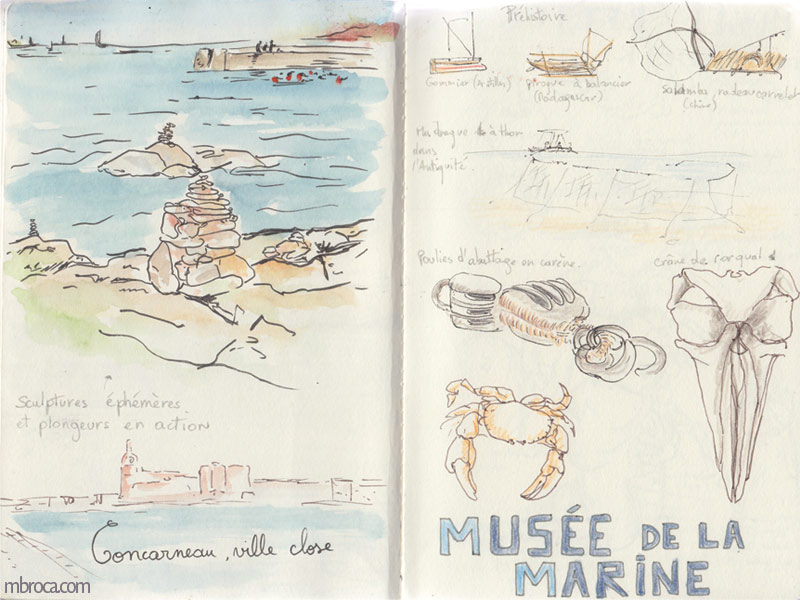 Sculptures éphémères
et plongeurs en action
Concarneau, ville close
mbroca.com
Préhistoire
Gommier (Antilles)
Pirogue à balancier
(Madagascar)
(Chine)
Madrague à thon
dans
l'Antiquité.
Poulies d'abattage en carène.
crâne de rorqual
MUSÉE DE LA
MARINE